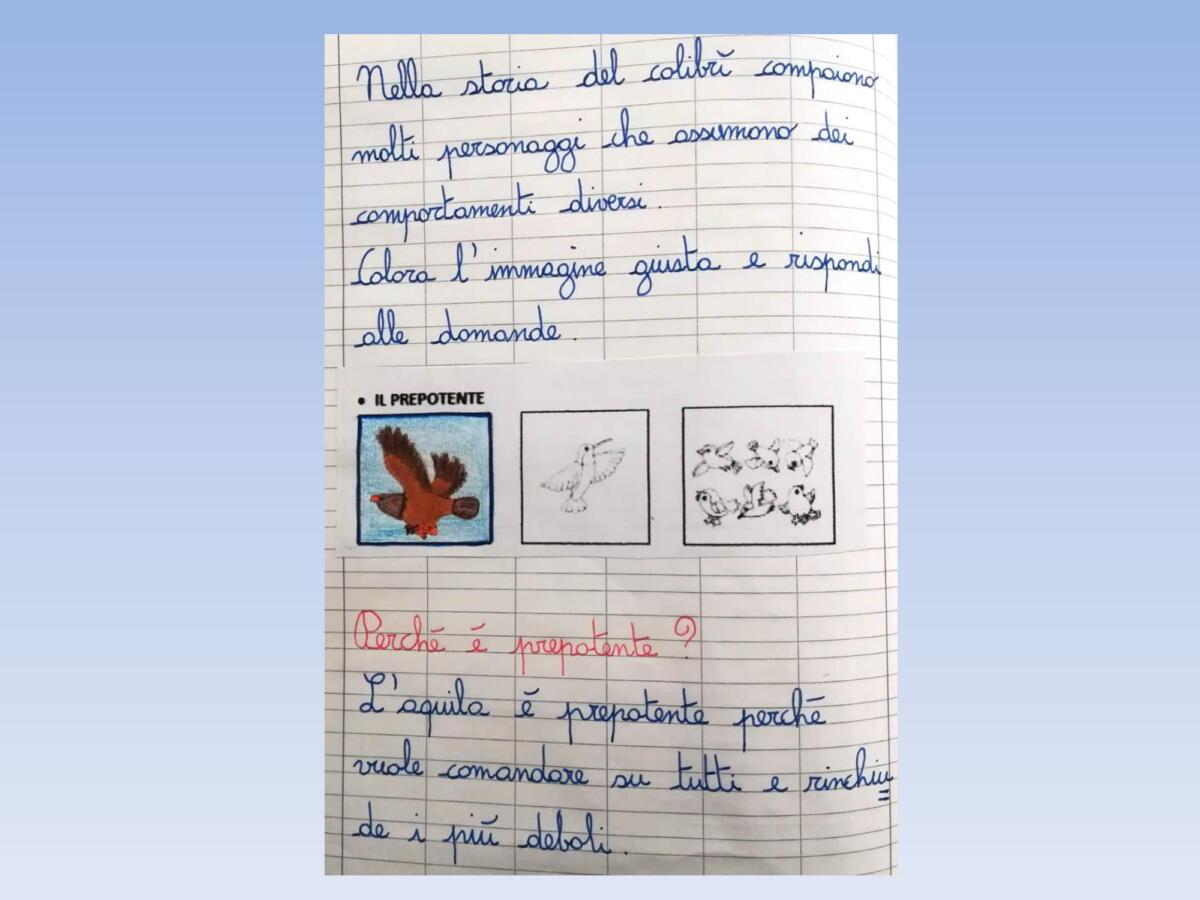 Nella storia del colibrì compaiono
molti personaggi che assumono dei
comportamenti diversi.
Colora l'immagine giusta e rispondi
alle domande.
• IL PREPOTENTE
Perché é prepotente?
L'aquila è prepotente perché
vuole comandare su tutti e rinchiu=
de i più deboli.